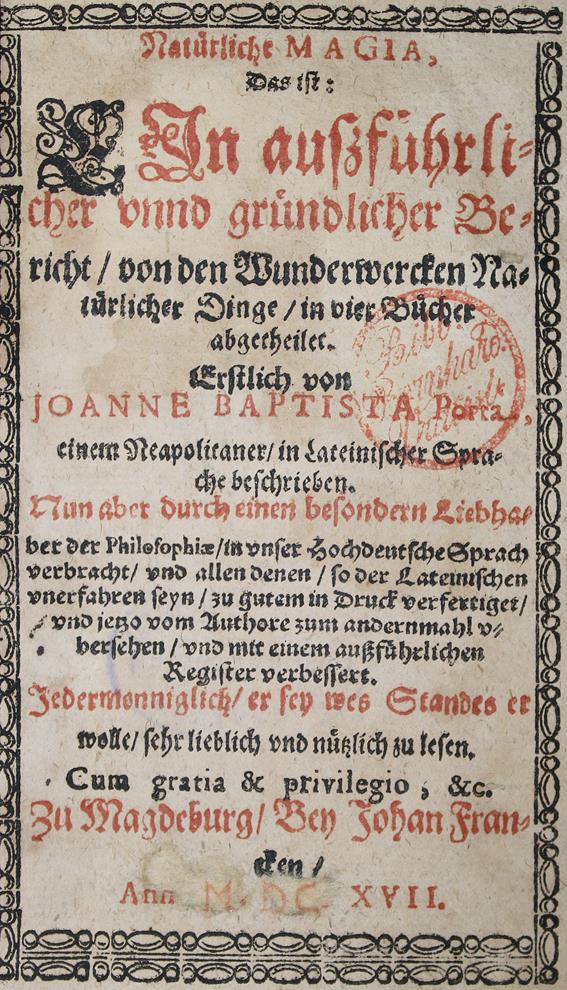 Natürliche MAGIA,
Das ist:
EJn außführli-
cher vnnd gründlicher Be-
richt / von den Wunderwercken Na-
türlicher Dinge / in vier Bücher
abgetheilet.
Erstlich von
JOANNE BAPTISTA Porta,
einem Neapolitaner/ in Lateinischer Spra-
che beschrieben.
Nun aber durch einen besondern Liebha-
ber der Philosophiæ/in vnser Hochdeutsche Sprach
verbracht/ vnd allen denen / so der Lateinischen
vnerfahren seyn / zu gutem in Druck verfertiget/
vnd jetzo vom Authore zum andernmahl v-
bersehen / vnd mit einem außführlichen
Register verbessert.
Jedermonniglich/ er sey wes Standes er
wolle/ sehr lieblich vnd nützlich zu lesen.
Cum gratia & privilegio, &c.
Zu Magdeburg/ Bey Johan Fran-
cken /
Ann M. DC. XVII.